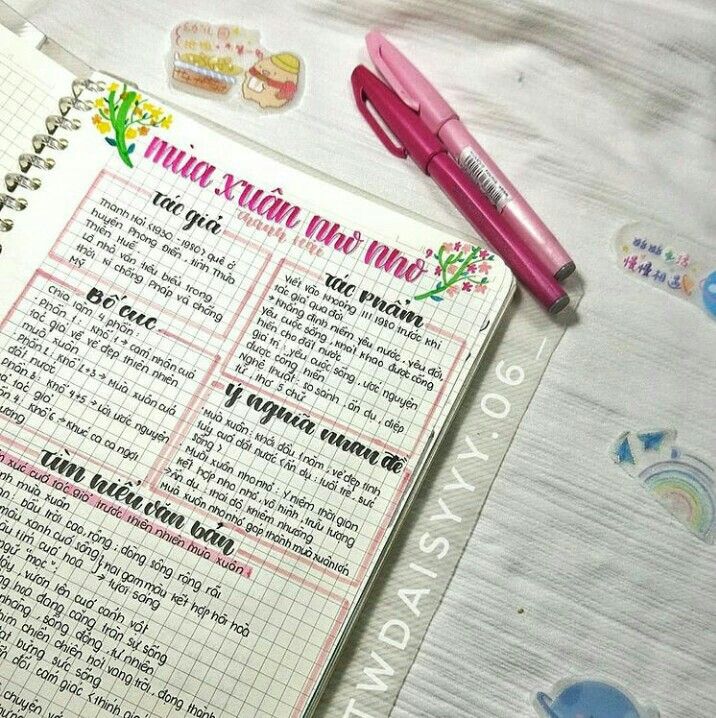 mùa xuân nho nhỏ
Thanh Hải
Tác giả
Thanh Hải (1930 - 1980) quê ở
huyện Phong Điền, tỉnh Thừa
Thiên Huế.
Là nhà văn tiêu biểu trong
thời kì chống Pháp và chống
Mỹ
Bố cục
Chia làm 4 phần:
Phần 1: Khổ 1 → cảm nhận của
tác giả về vẻ đẹp thiên nhiên
mùa xuân
Phần 2: Khổ 2+3 → Mùa xuân của
đất nước
Phần 3: Khổ 4+5 → Lời ước nguyện
tác giả
4: Khổ 6 → Khúc ca ca ngợi
Tác phẩm
Viết vào khoảng 11/1980 trước khi
tác giả qua đời
→ Khẳng định niềm yêu nước, yêu đời,
yêu cuộc sống, khát khao được cống
hiến cho đất nước
giá trị: yêu cuộc sống, ước nguyện
được cống hiến
Nghệ thuật: so sánh, ẩn dụ, điệp
từ, thơ 5 chữ
Ý nghĩa nhan đề
Mùa xuân: khởi đầu 1 năm, vẻ đẹp tinh
túy của đất nước (ẩn dụ: tuổi trẻ, sức
sống)
Mùa xuân nho nhỏ: Ý niệm thời gian
kết hợp nho nhỏ, vô hình, trừu tượng
→ Ẩn dụ, thái độ khiêm nhường
Mùa xuân nho nhỏ góp thành mùa xuân lớn
Tìm hiểu văn bản
xúc của tác giả trước thiên nhiên mùa xuân:
mùa xuân
bầu trời cao rộng, dòng sông rộng rãi
màu xanh của sông
tím của hoa
→ hai gam màu kết hợp hài hoà
→ tươi sáng
"mọc"
vươn lên của cánh vật
hoa đang căng tràn sự sống
nhàng, sống động, tự nhiên
chim chiền chiện hót vang trời, đọng thành
bừng sức sống
đổi cảm giác (thính
chuyện
TWDAISYYY.06_
慢慢相遇